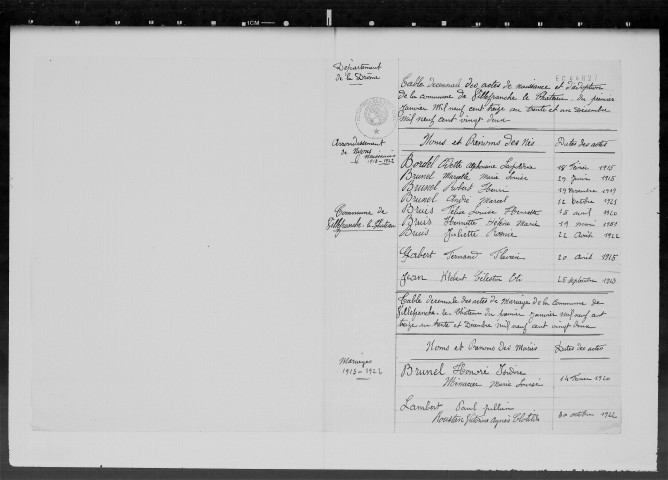 Département
de la Drôme
Table décennale des actes de naissance et d'adoption
de la commune de Villefranche le Château du premier
janvier mil neuf cent treize au trente et un décembre
mil neuf cent vingt deux
Arrondissement
de Nyons
Naissances
1913-1922
Noms et Prénoms des Nés Dates des actes
Bordel Odette 18 Février 1915
Brunel Marcelle Marie Louise 1915
Brunel Robert Henri 19 novembre 1919
Brunel André Marcel 12 octobre 1921
Brus Félice Louise Henriette 15 avril 1920
Brus Henriette Hélène Marie 19 mai 1921
Brus Juliette 22 Août 1922
Commune de
Villefranche-le-Château
Gabert Fernand Flavien 20 Avril 1915
Jean Klébert Célestin 25 septembre 1913
Table décennale des actes de Mariage de la commune de
Villefranche-le-Château du premier janvier mil neuf cent
treize au trente et Décembre mil neuf cent vingt deux
Noms et Prénoms des Mariés Dates des actes
Mariages
1913-1922
Brunel Honoré Isidore
Marie Louise 14 Février 1920
Lambert Paul Jullien
Agnès Clotilde 30 octobre 1922